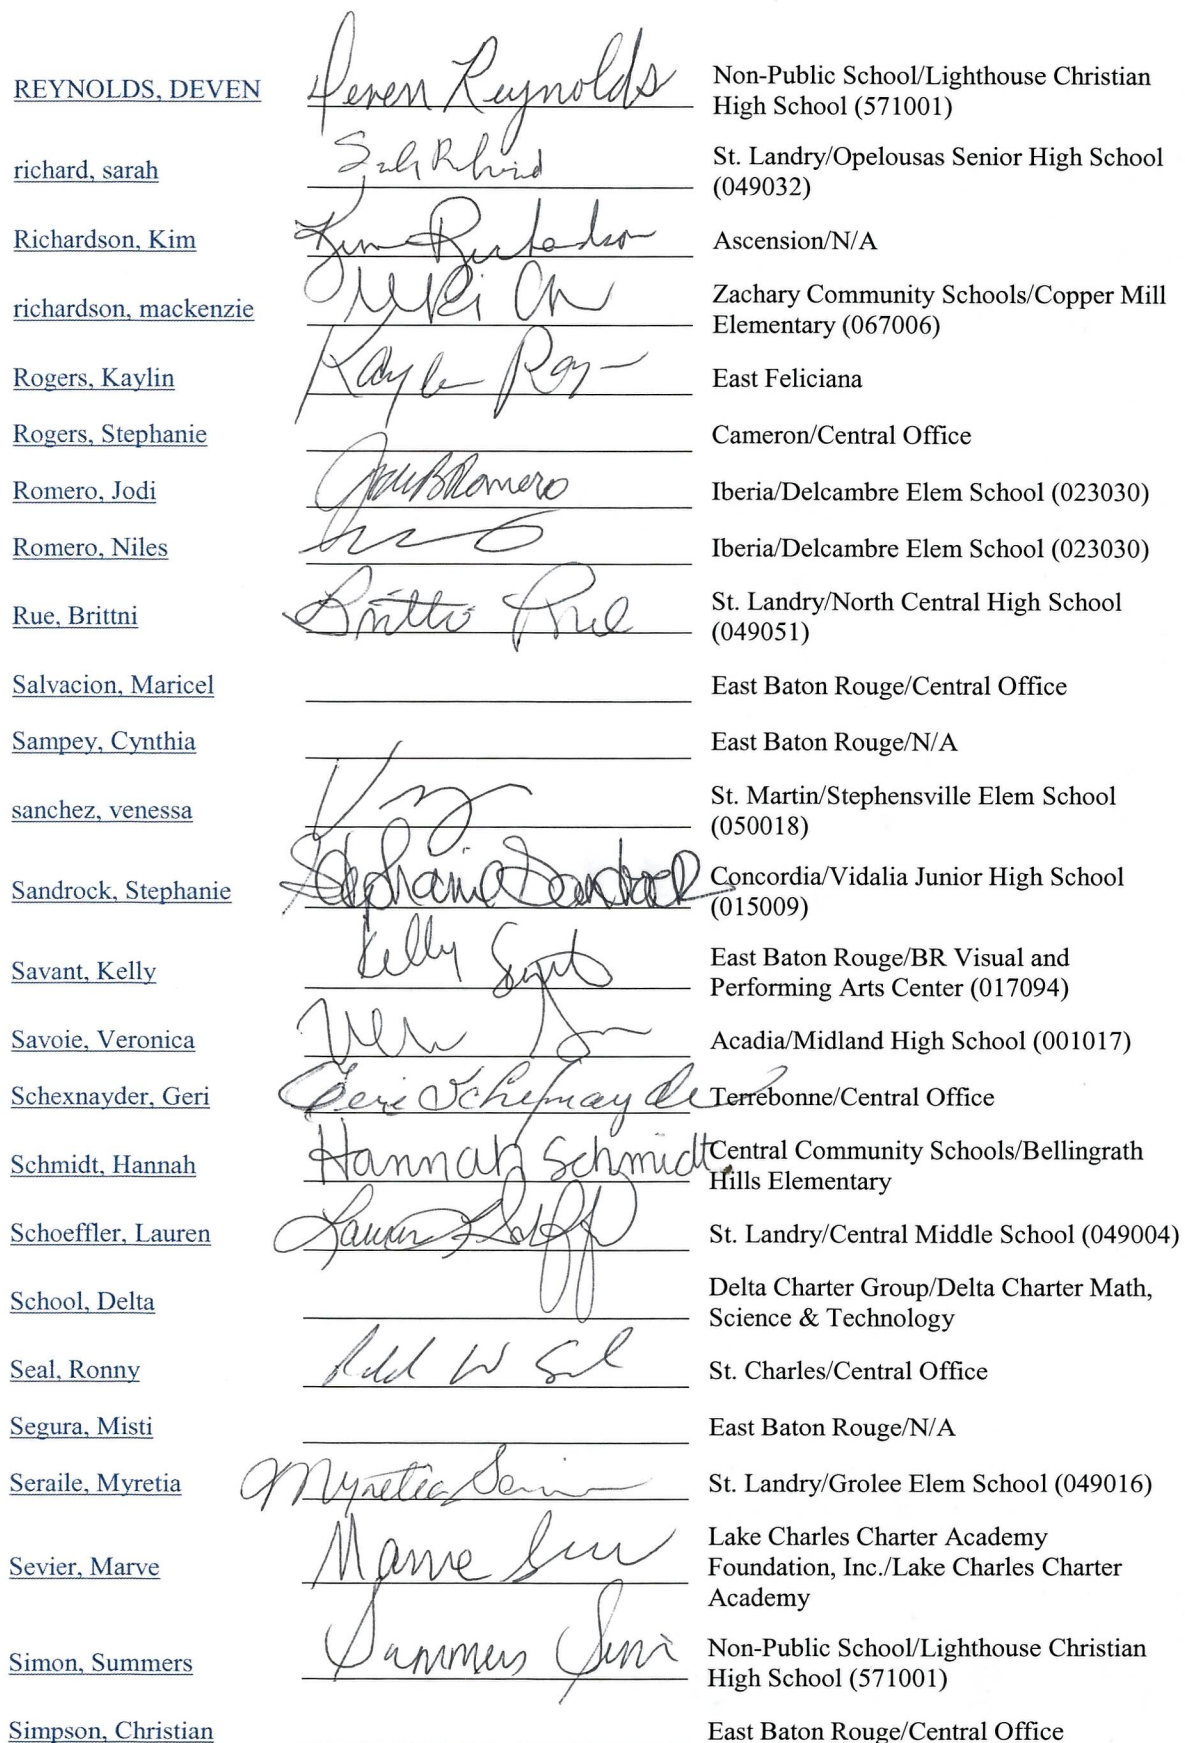 REYNOLDS, DEVEN Deven Reynolds Non-Public School/Lighthouse Christian
High School (571001)
richard, sarah St. Landry/Opelousas Senior High School
(049032)
Richardson, Kim Kim Richardson Ascension/N/A
richardson, mackenzie Zachary Community Schools/Copper Mill
Elementary (067006)
Rogers, Kaylin East Feliciana
Rogers, Stephanie Cameron/Central Office
Romero, Jodi Romero Iberia/Delcambre Elem School (023030)
Romero, Niles Iberia/Delcambre Elem School (023030)
Rue, Brittni St. Landry/North Central High School
(049051)
Salvacion, Maricel East Baton Rouge/Central Office
Sampey, Cynthia East Baton Rouge/N/A
sanchez, venessa St. Martin/Stephensville Elem School
(050018)
Sandrock, Stephanie Stephanie Sandrock Concordia/Vidalia Junior High School
(015009)
Savant, Kelly Kelly East Baton Rouge/BR Visual and
Performing Arts Center (017094)
Savoie, Veronica Acadia/Midland High School (001017)
Schexnayder, Geri Geri Schexnayder Terrebonne/Central Office
Schmidt, Hannah Hannah Schmidt Central Community Schools/Bellingrath
Hills Elementary
Schoeffler, Lauren Lauren St. Landry/Central Middle School (049004)
School, Delta Delta Charter Group/Delta Charter Math,
Science & Technology
Seal, Ronny St. Charles/Central Office
Segura, Misti East Baton Rouge/N/A
Seraile, Myretia Myretia St. Landry/Grolee Elem School (049016)
Sevier, Marve Lake Charles Charter Academy
Foundation, Inc./Lake Charles Charter
Academy
Simon, Summers Summers Non-Public School/Lighthouse Christian
High School (571001)
Simpson, Christian East Baton Rouge/Central Office